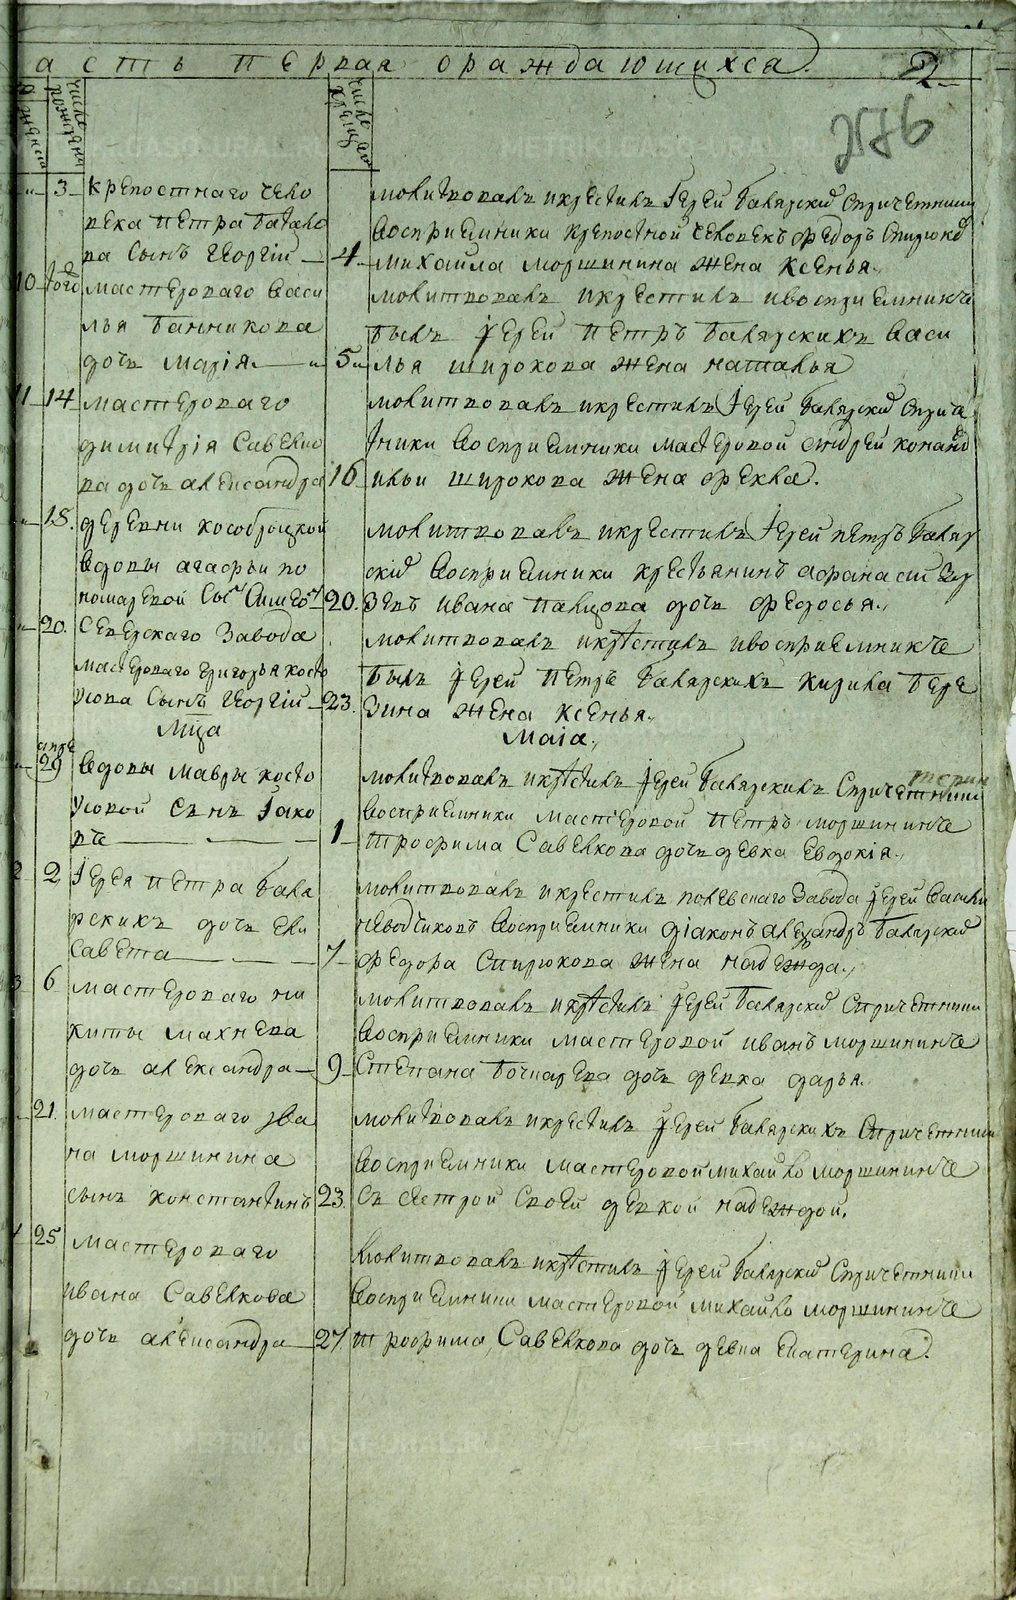 асть первая ораждающихся. 2
2576
число рождени число крещен
3 крепостнаго чело
века петра батало
ва сынъ георгий 4
молитвовалъ икрестилъ Iерей балярский спричетники
восприемники крепостной человекъ федоръ спирюко
михаила моршинина жена ксенья.
10 того мастероваго васи
лья банникова
дочь марiя 5
молитвовалъ икрестилъ ивосприемникъ
былъ Iерей петръ балярскихъ васи
лья широкова жена наталья
11 14 мастероваго
димитрiя савелко
ва дочь александра 16
молитвовалъ икрестилъ Iерей балярский сприче
тники восприемники мастеровой андрей
ильи широкова жена фекла.
18. деревни кособродкой
вдовы агафьи по
номаревой сынъ симеонъ 20.
молитвовалъ икрестилъ Iерей петръ баляр
ский восприемники крестьянинъ афанасий
зевъ ивана палцова дочь федосья.
20. северскаго завода
мастероваго григорья косто
усова сынъ георгий 23.
молитвовалъ икрестилъ ивосприемникъ
былъ Iерей петръ балярскихъ кирила бере
зина жена ксенья.
мца маiа.
апре
29 вдовы мавры косто
усовой сынъ Iако
въ 1
молитвовалъ икрестилъ Iерей балярскихъ спричетники
восприемники мастеровой петръ моршининъ
трофима савелкова дочь девка евдокiя.
2 2 Iерея петра баля
рскихъ дочь ели
савета 7
молитвовалъ икрестилъ полевскаго завода Iерей василий
неводчиковъ восприемники дiаконъ александръ балярский
федора спирюкова жена надежда.
3 6 мастероваго ни
киты махнева
дочь александра 9
молитвовалъ икрестилъ Iерей балярский спричетники
восприемники мастеровой иванъ моршининъ
степана бочкарева дочь девка дарья.
21. мастероваго ива
на моршинина
сынъ константинъ 23.
молитвовалъ икрестилъ Iерей балярскихъ спричетники
восприемники мастеровой михайло моршининъ
съ сестрой своей девкой надеждой.
25 мастероваго
ивана савелкова
дочь александра 27.
молитвовалъ икрестилъ Iерей балярский спричетники
восприемники мастеровой михайло моршининъ
трофима савелкова дочь девка екатерина.